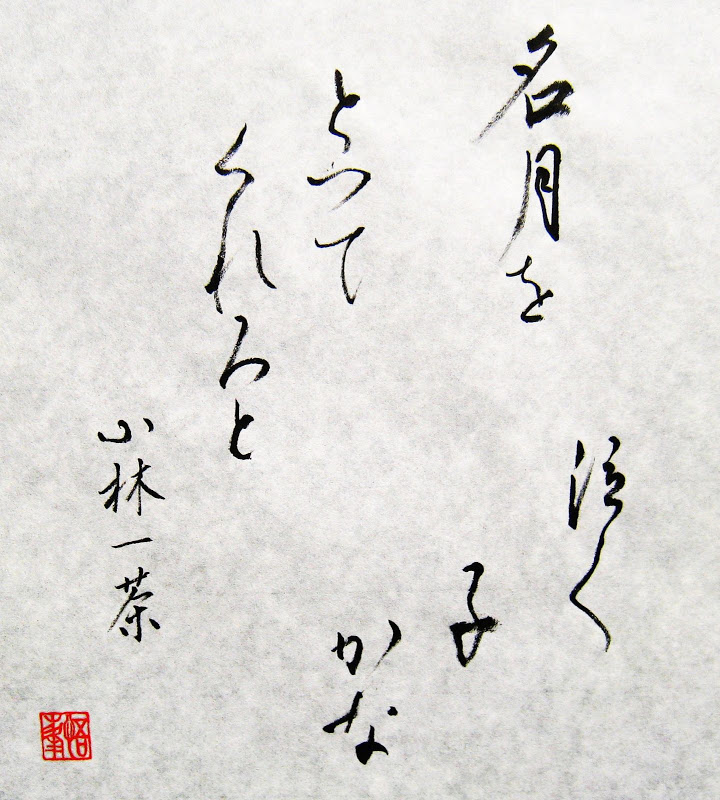 名月を
とって
くれろと
泣く
子
かな
小林一茶